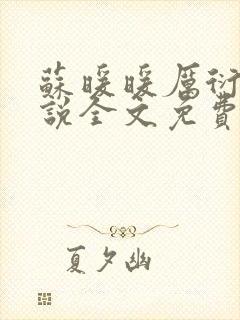 蘇暖暖厲衍
說全文免費
夏夕幽